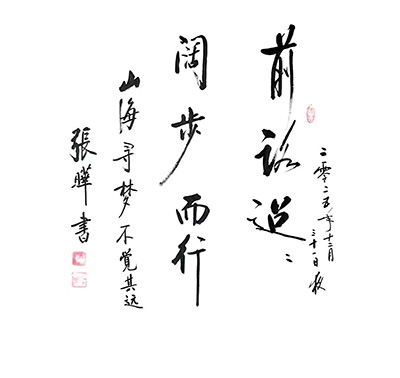 二零二五年十二月
三十一日夜
前路迢〻
阔步而行
山海寻梦不覺其远
張曄書